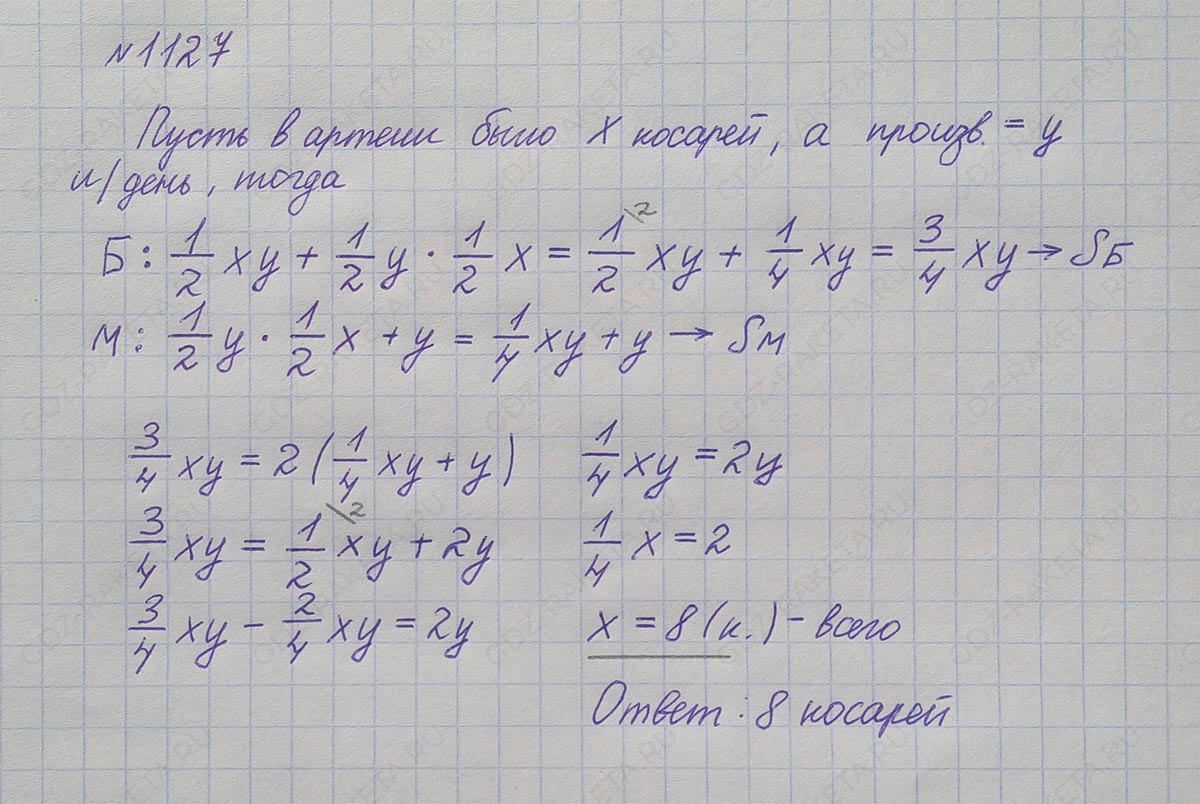 №1127
Пусть в артели было x косарей, а произв. = y
м/день, тогда
Б: 1/2 xy + 1/2 y · 1/2 x = 1/2 \2 xy + 1/4 xy = 3/4 xy → SБ
М: 1/2 y · 1/2 x + y = 1/4 xy + y → Sм
3/4 xy = 2 (1/4 xy + y)
3/4 xy = 1/2 \2 xy + 2y
3/4 xy - 2/4 xy = 2y
1/4 xy = 2y
1/4 x = 2
x = 8 (к.) - всего
Ответ: 8 косарей
GDZ-RAKETA.RU